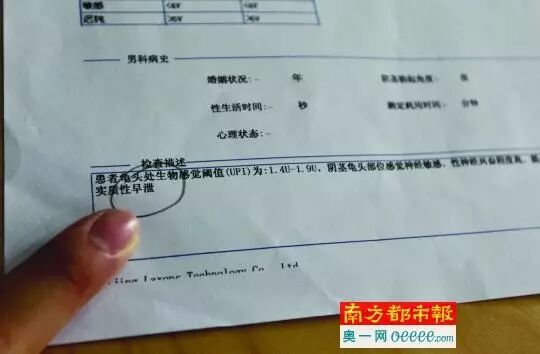 敏感 <6V <6V
迟钝 >26V >26V
男科病史
婚姻状况:- 年 阴茎勃起角度: 度
性生活时间:- 秒 测定耗用时间: 分钟
心理状态:-
检查描述
患者龟头处生物感觉阈值(UPI)为:1.4U-1.9U, 阴茎龟头部位感觉神经敏感, 性神经兴奋程度高,
实质性早泄
Technology Co., Ltd
南方都市報
奥一网oeeee.com